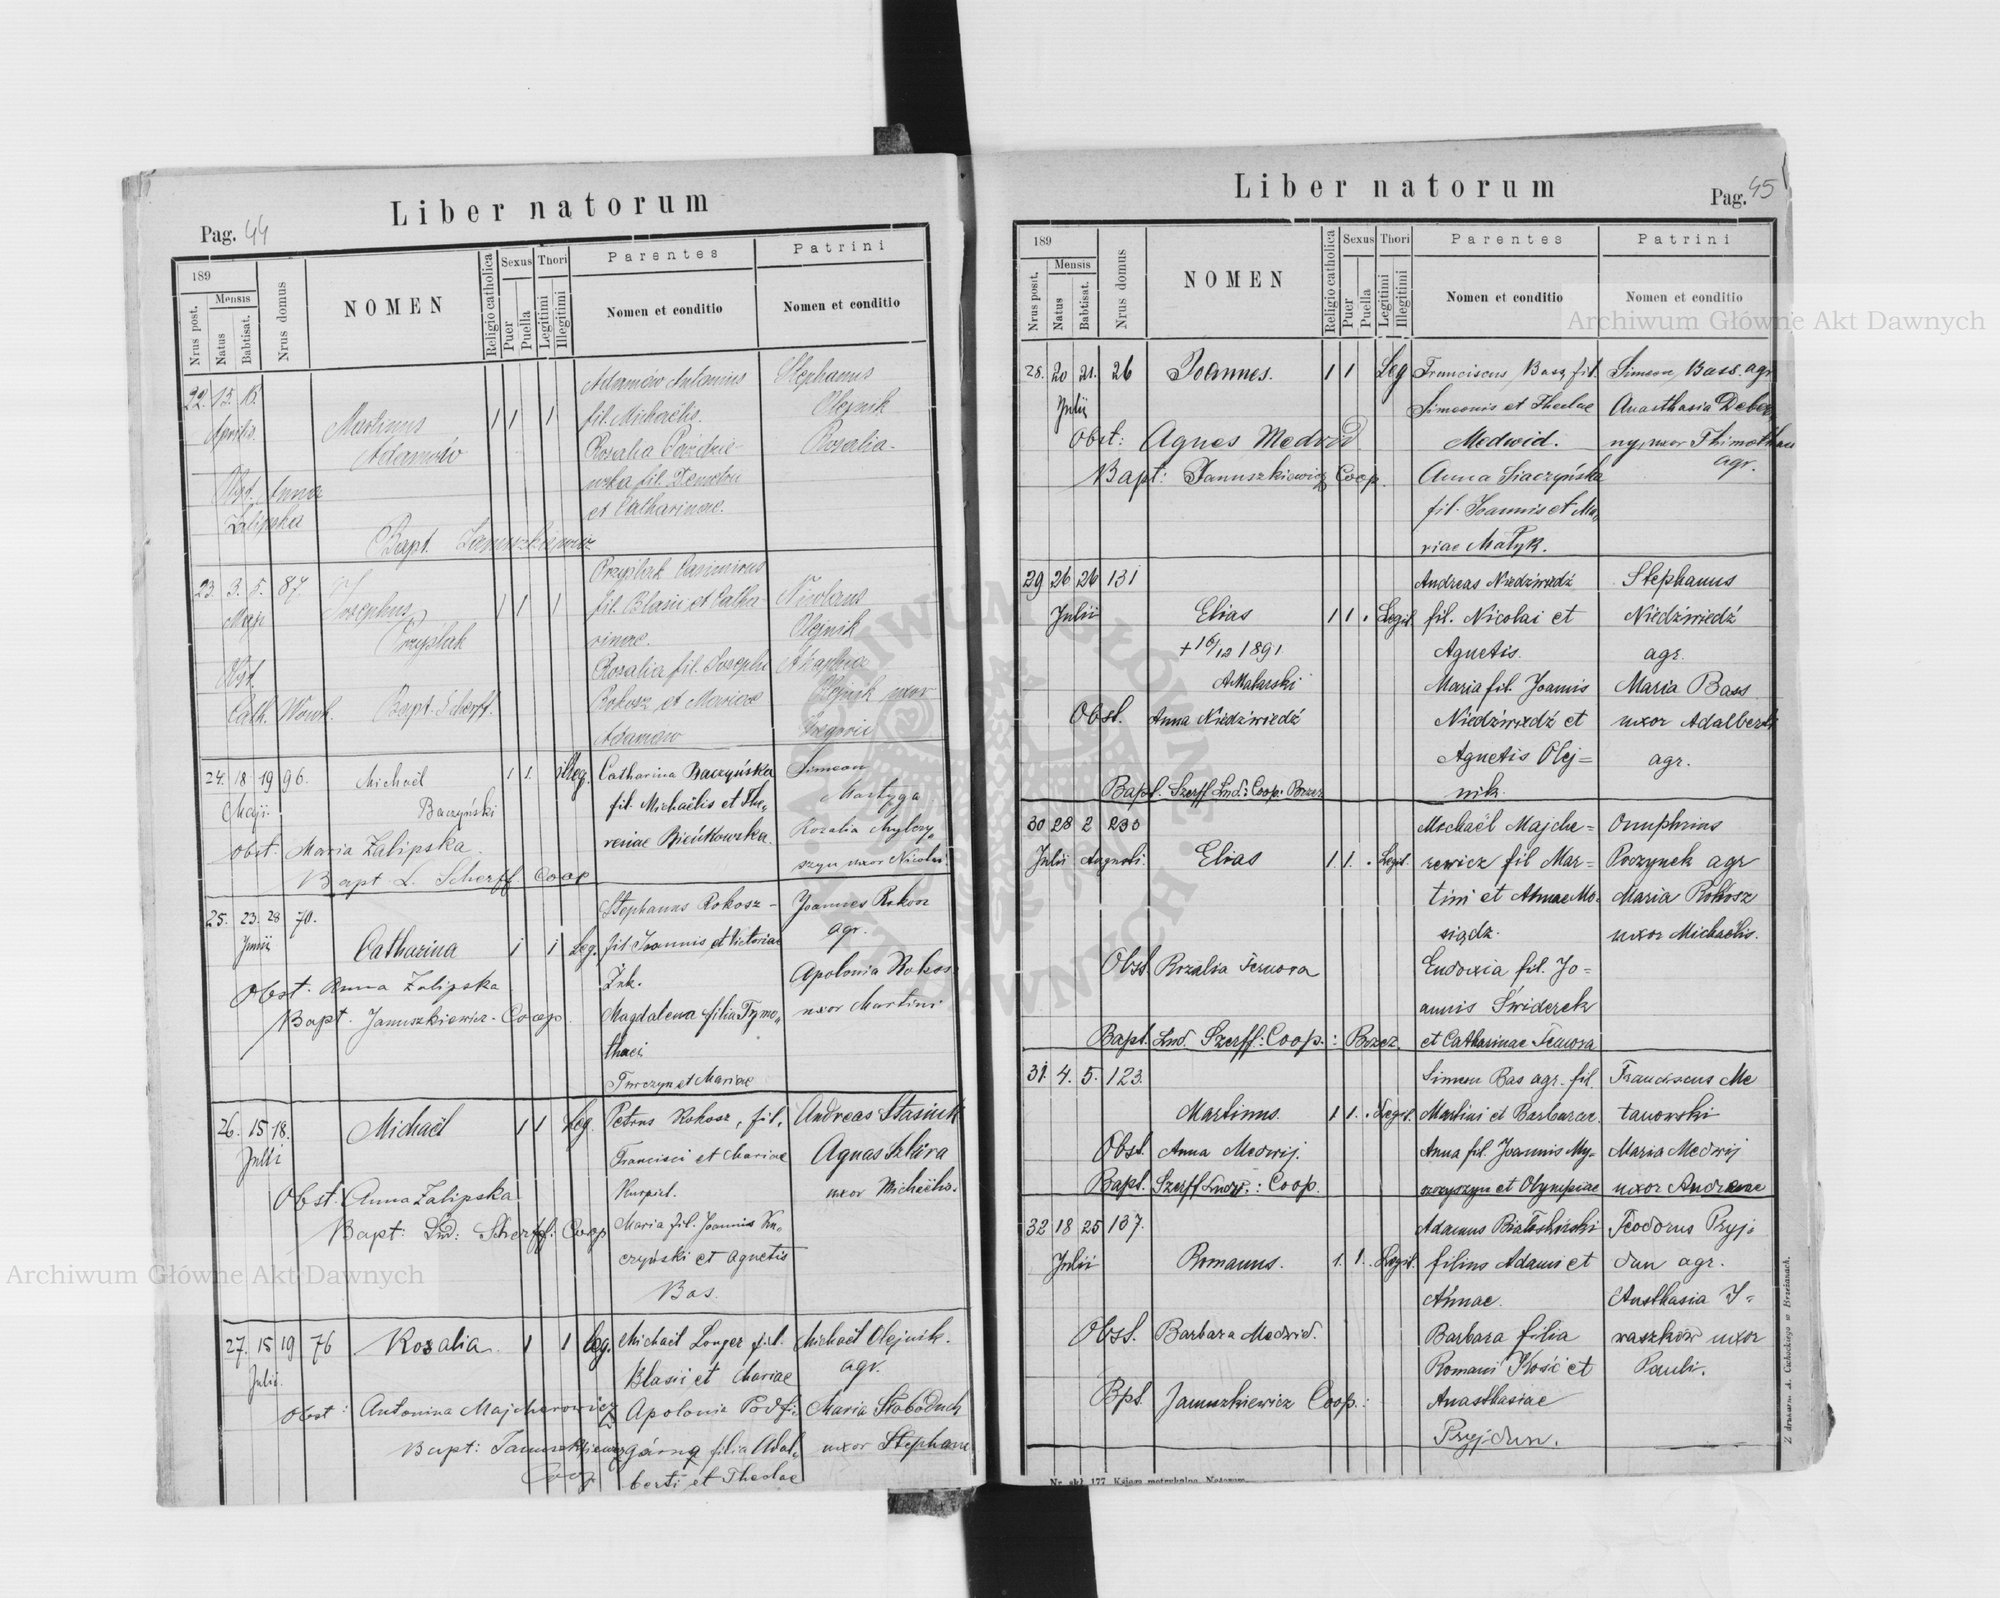 Liber natorum
Pag. 44
189
Mensis
Nrus post.
Natus
Babtisat.
Nrus domus
NOMEN
Religio catholica
Sexus
Puer
Puella
Thori
Legitimi
Illegitimi
Parentes
Nomen et conditio
Patrini
Nomen et conditio
22. 15.
Adamów Antonius Stephanus
Aprilis. Martinus 1 1 1 fil. Michaëlis. Olejnik
Adamów Rosalia Rosalia
fil.
Obst. Anna et Catharinae.
Zalipska
Bapt. Januszkiewicz
23. 3. 5. 87 Casimirus
Maji Josephus 1 1 1 fil. Blasii et Catha Nicolaus
rinae. Olejnik
Obst. Rosalia fil. Josephi
Cath. Bapt. Scherff. Rokosz et Mariae Olejnik uxor
Adamów Gregorii
24. 18 19 96. Michaël 1 1. illeg. Catharina Baczyńska Simeon
Maji. Baczyński fil. Michaëlis et The, Martyga
obst. Maria Zalipska. resiae Bieńkowska. Rozalia
Bapt L. Scherff Coop szyn uxor Nicolai.
25. 23. 28 70. Stephanus Rokosz - Joannes Rokosz
Junii Catharina 1 1 Leg. fil. Joannis et Victoriae agr.
Obst. Anna Zalipska Żuk. Apolonia Rokosz
Bapt. Januszkiewicz - Coop Magdalena filia Tymo„ uxor Martini
thaei
Turczyn et Mariae
26. 15 18. Michaël 1 1 Leg. Petrus Rokosz, fil. Andreas Stasiuk
Julii Francisci et Mariae Agnes
Obst. Anna Zalipska Kurpiel. uxor Michaëlis.
Bapt: Lud: Scherff: Coop Maria fil. Joannis Ku„
czyński et Agnetis
Bas.
27. 15 19 76 Rozalia 1 1 leg. Michaël Longer fil. Michaël Olejnik.
Julii. Blasii et Mariae agr.
Obst: Antonina Majcherowicz Apolonia Pod Maria Słoboduch
Bapt: Januszkiewicz górną filia Adal„ uxor Stephani
Coop berti et Theclae
Liber natorum
Pag. 45
189
Mensis
Nrus post.
Natus
Babtisat.
Nrus domus
NOMEN
Religio catholica
Sexus
Puer
Puella
Thori
Legitimi
Illegitimi
Parentes
Nomen et conditio
Patrini
Nomen et conditio
28. 20 21. 26 Joannes. 1 1 Leg Franciscus Bass, fil. Simeon Bass. agr.
Julii Simeonis et Theclae Anasthasia
Obst: Agnes Medwid Medwid. ny, uxor Thimothaei
Bapt: Januszkiewicz Coop. Anna Siaczyńska agr.
fil. Joannis et Ma„
riae Matyk.
29 26 26 131 Andreas Niedźwiedź Stephanus
Julii Elias 1 1 . Legit. fil. Nicolai et Niedźwiedź
+ 16/12 1891 Agnetis. agr.
A Malarski Maria fil. Joannis Maria Bass
Obst. Anna Niedźwiedź Niedźwiedź et uxor Adalberti
Agnetis Olej= agr.
Bapt. Szerff Lud: Coop: Brzez nik.
30 28 2 230 Michaël Majche= Onuphrius
Julii Augusti. Elias 1 1. . Legit. rewicz fil Mar= Poczynek agr
tini et Annae Mo. Maria Rokosz
siądz. uxor Michaëlis.
Obst Rozalia Femora Eudoxia fil. Jo=
annis Świderek
Bapt. Lud. Szerff: Coop.: Brzez. et Catharinae Femora
31. 4. 5. 123. Simeon Bas agr. fil. Franciscus Me
Martinus. 1 1. . Legit. Martini et Barbarae. tanowski
Obst. Anna Medwij. Anna fil. Joannis My- Maria Medwij
Bapt. Szerff Ludw.: Coop. et Olympiae uxor Andreae
32 18 25 137. Adamus Teodorus Pryj=
Julii Romanus. 1. 1. . Legit. filius Adami et dun agr.
Annae. Anasthasia J=
Obst. Barbara Medwid. Barbara filia waszków uxor
Romani Kość et Pauli.
Bpt. Januszkiewicz Coop.: Anasthasiae
Pryjdun.
Nr. skł. 177. Księga metrykalna Natorum.
Z drukarni A. Cichockiego w Brzeżanach.
Archiwum Główne Akt Dawnych
Archiwum Główne Akt Dawnych
ARCHIWUM GŁÓWNE AKT DAWNYCH